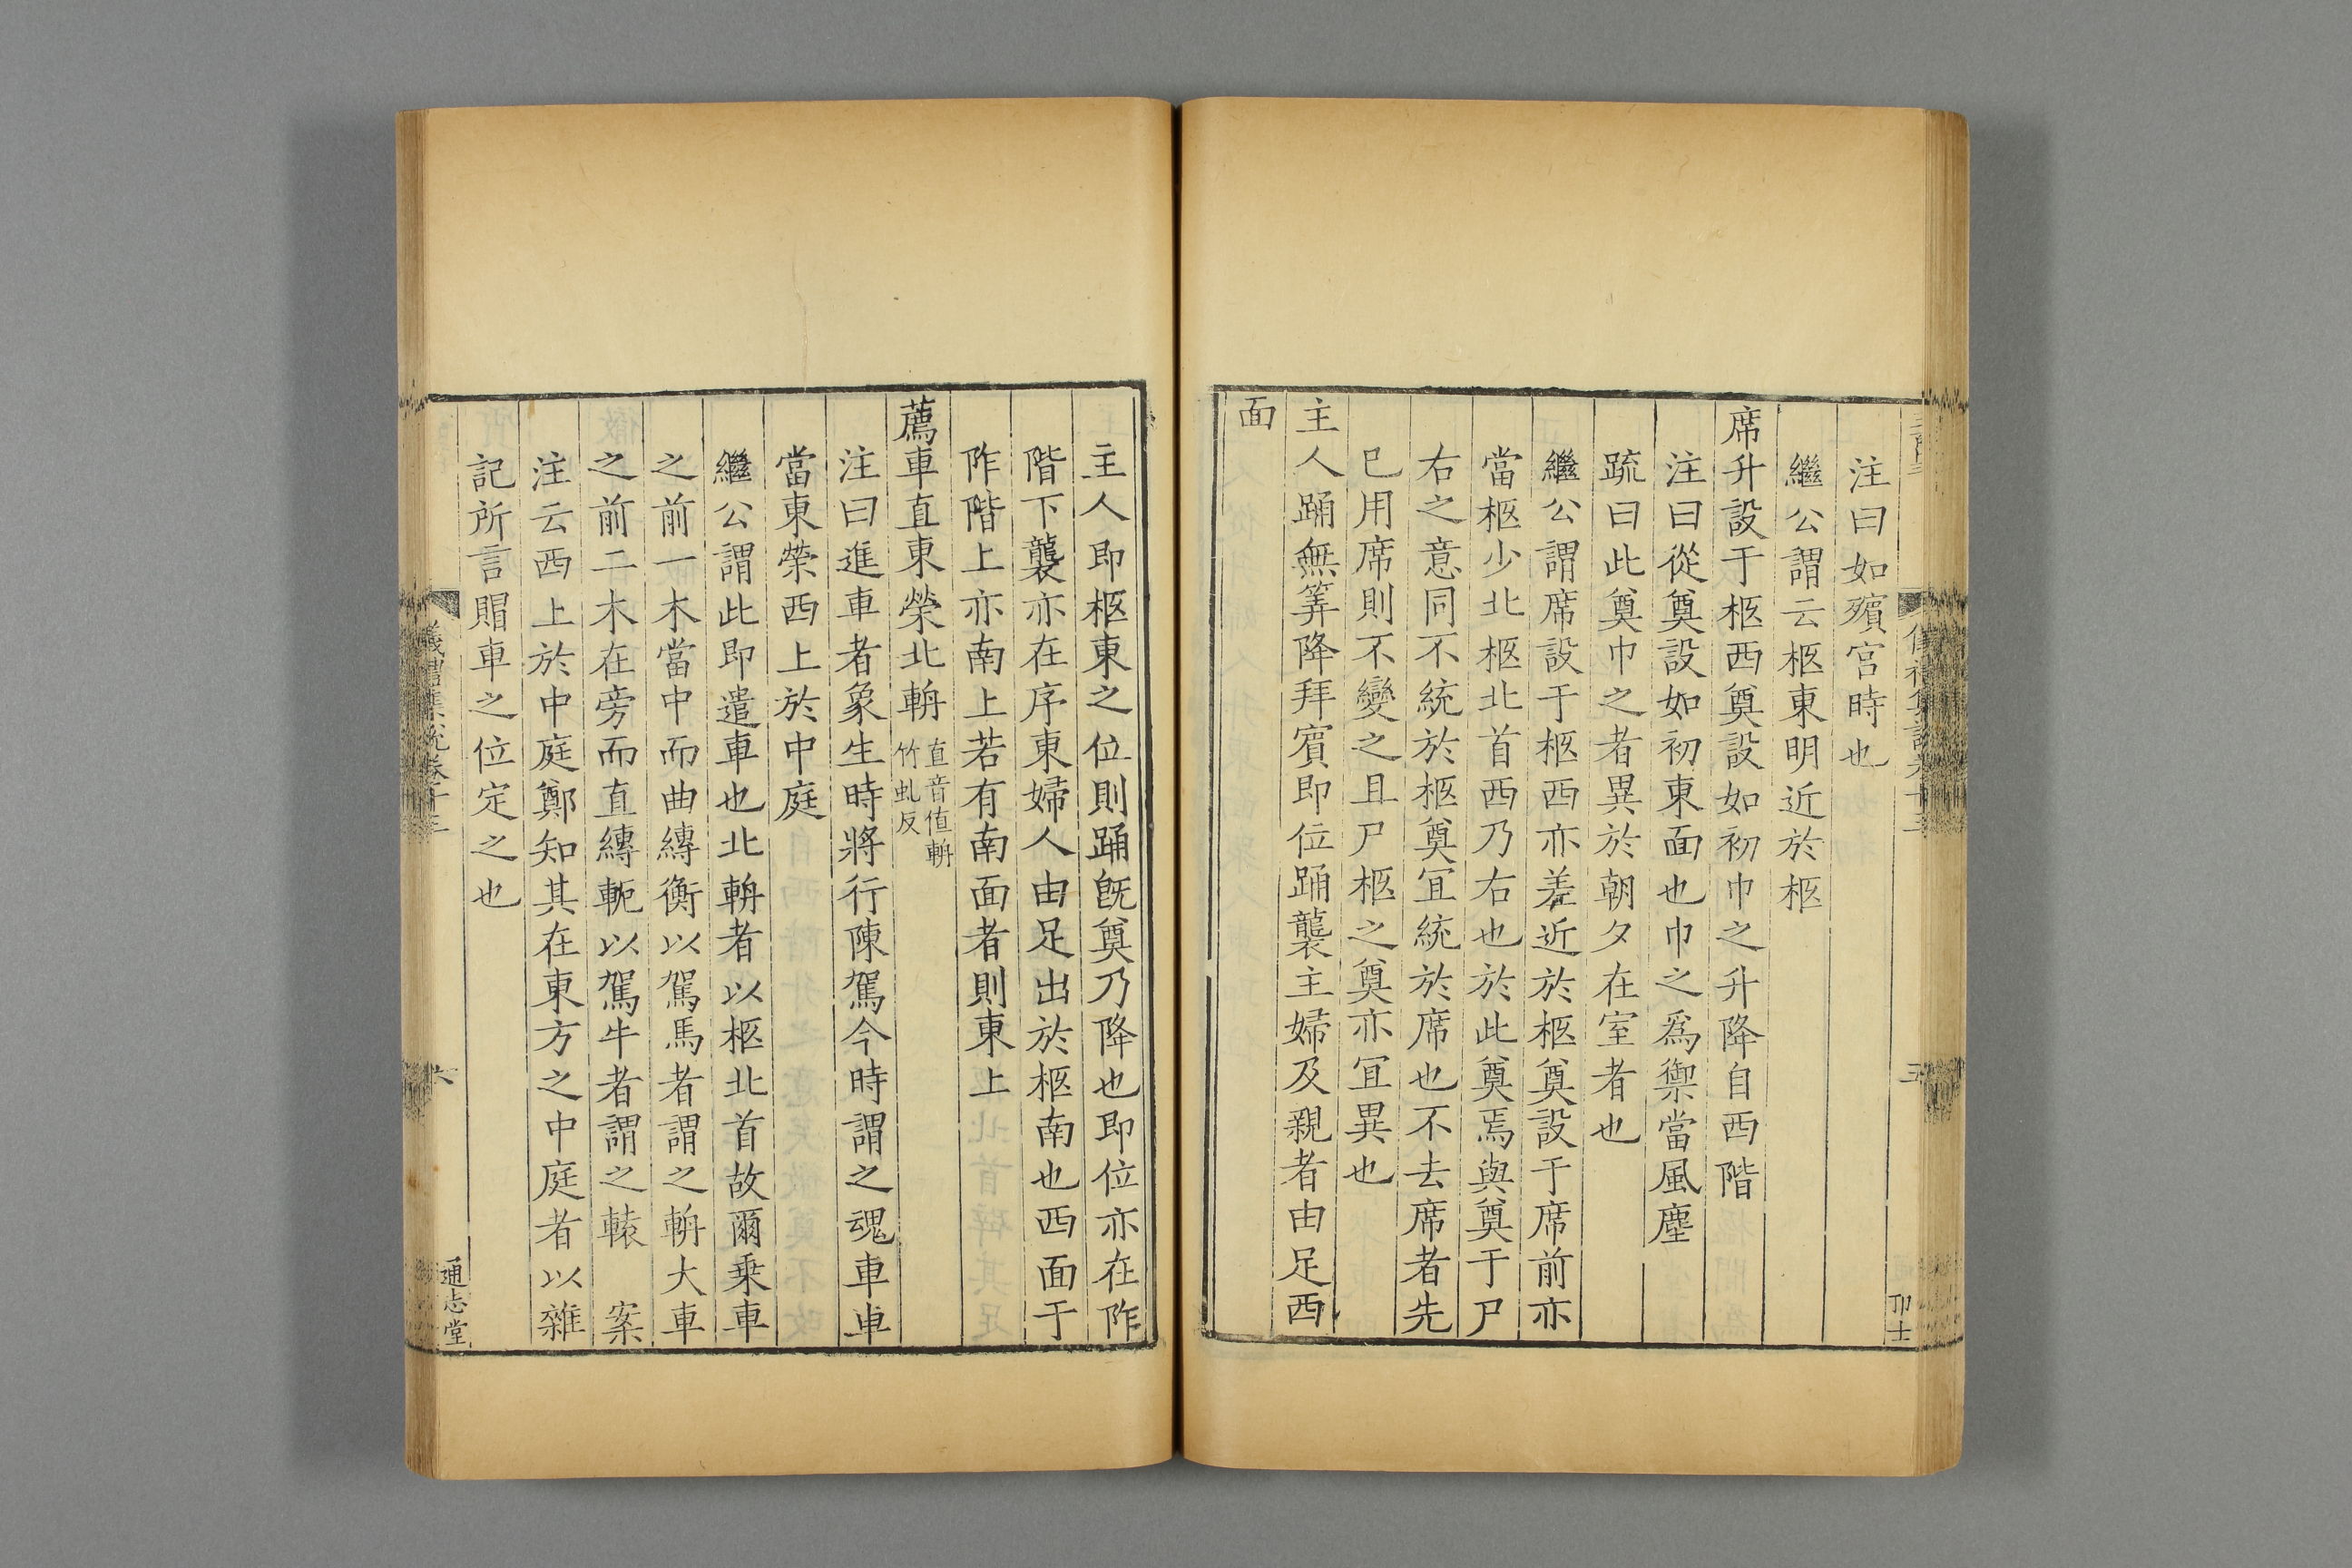 注曰如殯宮時也
繼公謂云柩東明近於柩
席升設于柩西奠設如初巾之升降自西階
注曰從奠設如初東面也巾之爲禦當風塵
疏曰此奠巾之者異於朝夕在室者也
繼公謂席設于柩西亦差近於柩奠設于席前亦
當柩少北柩北首西乃右也於此奠焉與奠于尸
右之意同不統於柩奠冝統於席也不去席者先
已用席則不變之且尸柩之奠亦冝異也
主人踊無筭降拜賓即位踊襲主婦及親者由足西
面
主人即柩東之位則踊旣奠乃降也即位亦在阼
階下襲亦在序東婦人由足出於柩南也西面于
阼階上亦南上若有南面者則東上
薦車直東榮北輈直音值輈竹虬反
注曰進車者象生時將行陳駕今時謂之魂車車
當東榮西上於中庭
繼公謂此即遣車也北輈者以柩北首故爾乗車
之前一木當中而曲縳衡以駕馬者謂之輈大車
之前二木在旁而直縳軛以駕牛者謂之轅 案
注云西上於中庭鄭知其在東方之中庭者以雜
記所言賵車之位定之也
六
通志堂